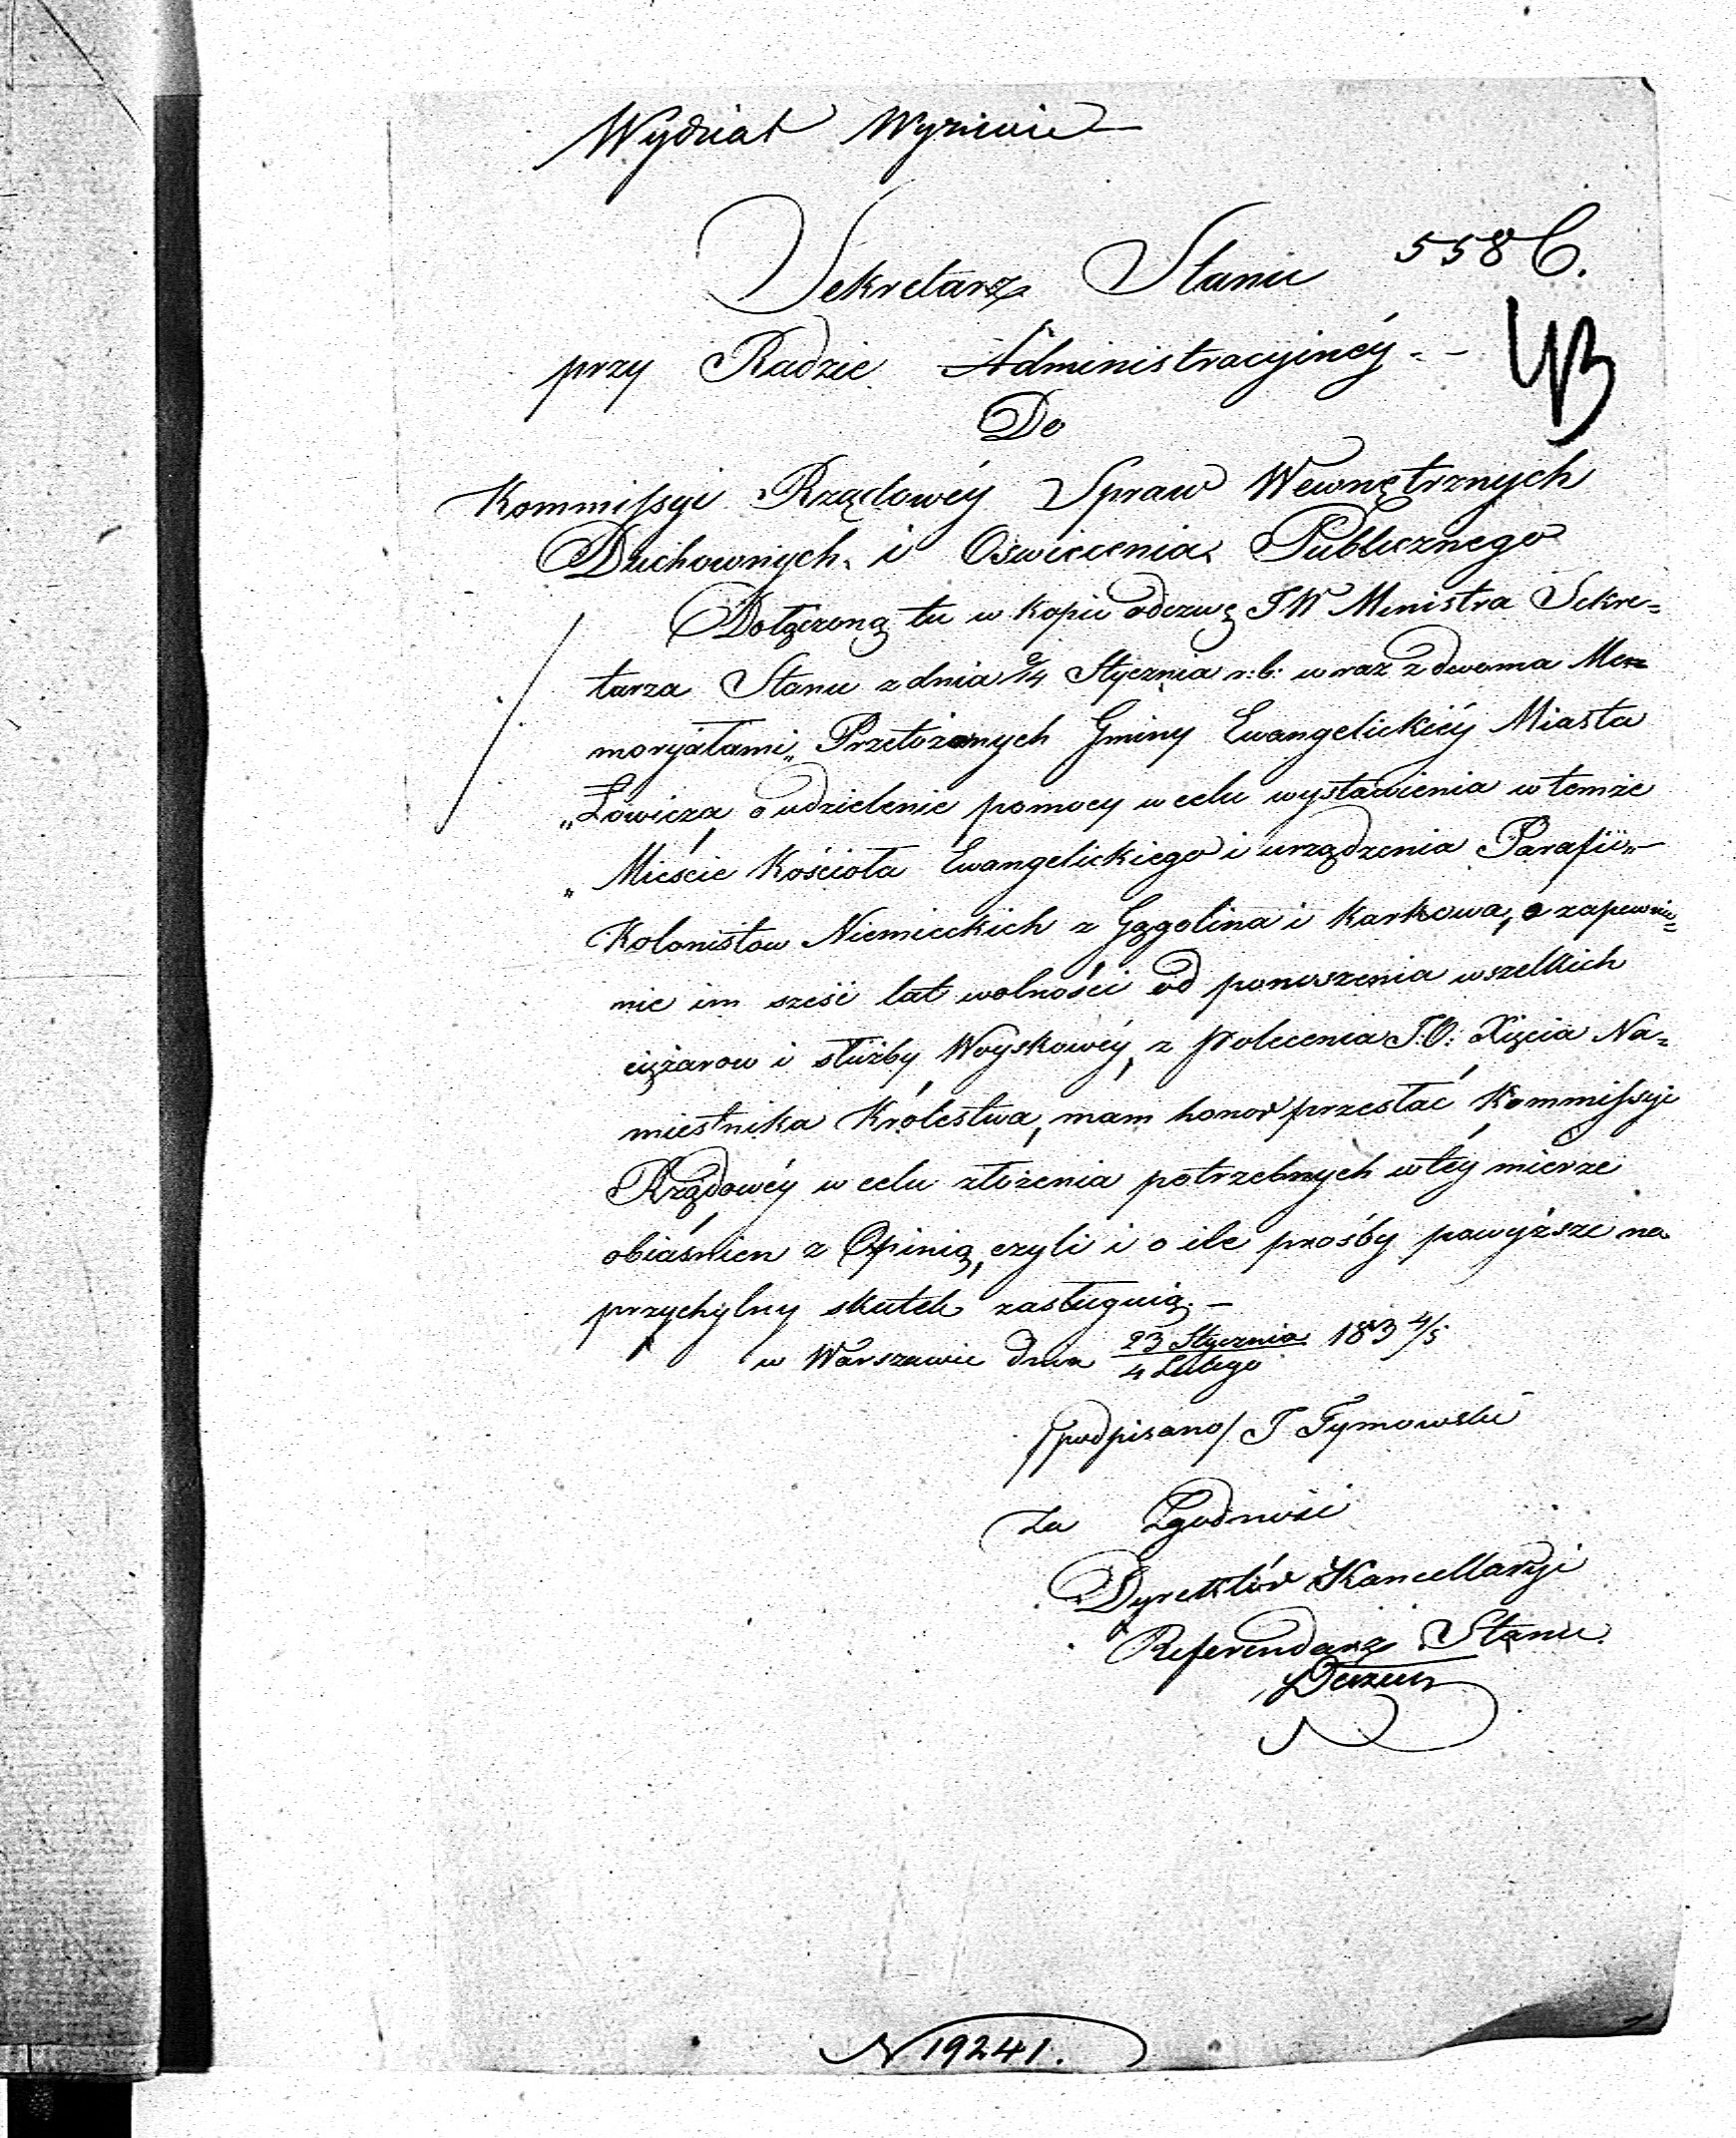 Wydział Wyznań
558 C.
Sekretarz Stanu
przy Radzie Administracyinéy
Do
Kommissyi Rządowéy Spraw Wewnętrznych
Duchownych i Oświecenia Publicznego
Dołączoną tu w kopii odezwę JW Ministra Sekre=
tarza Stanu z dnia 2/14 Stycznia r: b: wraz z dwoma Me=
moryałami „Przełożonych Gminy Ewangelickiéy Miasta
„Łowicza o udzielenie pomocy w celu wystawienia w temże
„Mieście Kościoła Ewangelickiego i urządzenia Parafii„
Kolonistow Niemieckich z Gągolina i Karkowa, o zapewnie=
nie im sześć lat wolności od ponoszenia wszelkich
ciężarow i służby Woyskowéy, z polecenia J.O: Xięcia Na=
miestnika Królestwa, mam honor przesłać Kommissyi
Rządowéy w celu złożenia potrzebnych w téy mierze
obiaśnien z Opinią, czyli i o ile prośby powyższe na
przychylny skutek zasługuią. –
w Warszawie dnia 23 Stycznia / 4 Lutego 183 4/5
/podpisano/ J Tymowski
Za Zgodność
Dyrektór Kancellaryi
Referendarz Stanu
N 19241.